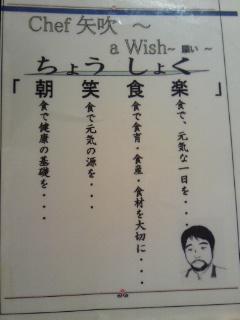 Chef 矢吹 ～
a Wish～ 願い ～
ちょうしょく
「朝笑食楽」
食で、元気な一日を・・・・
食で食育・食産・食材を大切に・・・・
食で元気の源を・・・・
食で健康の基礎を・・・・